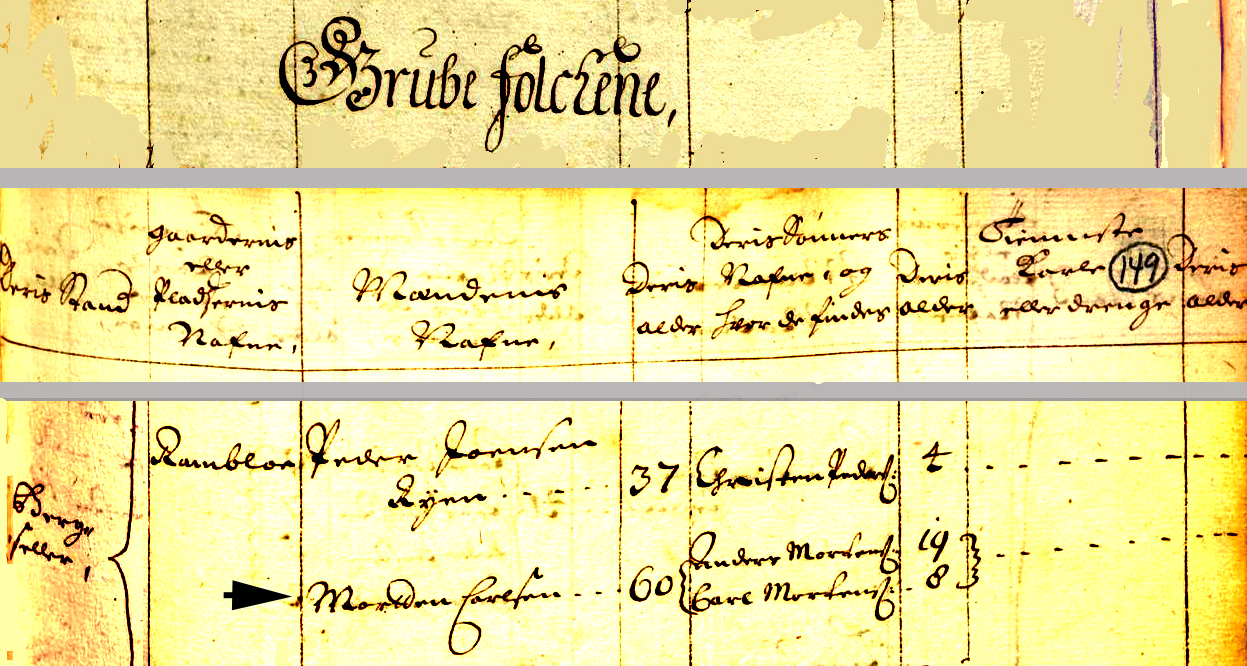 Grube folchene,
Deris Stand
gaardernis
eller
Pladsernis
Nafne,
Mandenis
Nafne,
Deris
alder
Deris Sønners
Nafne, og
hvor de findes
Deris
alder
Tienniste
Karle
eller drenge
149
Deris
alder
Berg-
seller,
Rambloe
Peder Joensen
Ryen
37
Christen Peders:
4
Mortten Carlsen
60
Anders Mortens:
19
Carl Mortens:
8